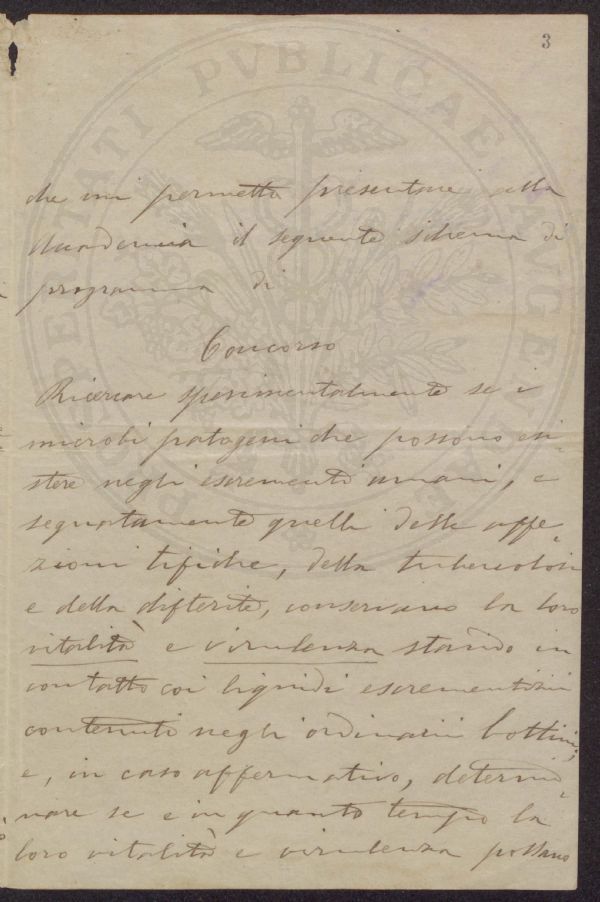 3
PROSPERITATI PVBLICAE AVGENDAE
che mi permetto presentare alla
Accademia il seguente schema di
programma di
Concorso
Ricercare sperimentalmente se i
microbi patogeni che possono esi-
stere negli escrementi umani, e
segnatamente quelli delle affe-
zioni tifiche, della tubercolosi
e della difterite, conservano la loro
vitalità e virulenza stando in
contatto coi liquidi escrementizii
contenuti negli ordinarii bottini;
e, in caso affermativo, determi-
nare se e in quanto tempo la
loro vitalità e virulenza possano